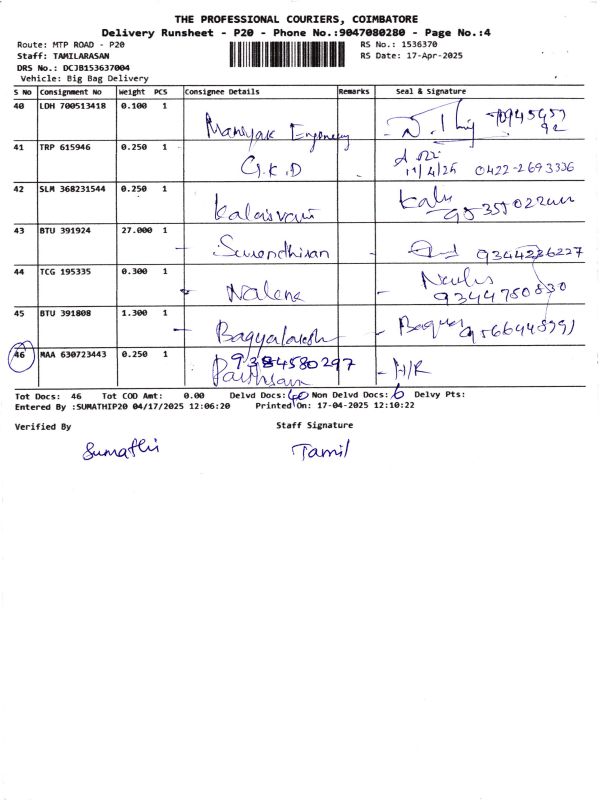 THE PROFESSIONAL COURIERS, COIMBATORE
Delivery Runsheet - P20 - Phone No.:9047080280 - Page No.:4
Route: MTP ROAD - P20 RS No.: 1536370
Staff: TAMILARASAN RS Date: 17-Apr-2025
DRS No.: DCJB153637004
Vehicle: Big Bag Delivery
S No Consignment No Weight PCS Consignee Details Remarks Seal & Signature
40 LDH 700513418 0.100 1
41 TRP 615946 0.250 1 G.K.D 0422-2693336
42 SLM 368231544 0.250 1 Kalaivani
43 BTU 391924 27.000 1
44 TCG 195335 0.300 1 Nalene 9344750830
45 BTU 391808 1.300 1
46 MAA 630723443 0.250 1 9384580297
Tot Docs: 46 Tot COD Amt: 0.00 Delvd Docs: 40 Non Delvd Docs: 6 Delvy Pts:
Entered By :SUMATHIP20 04/17/2025 12:06:20 Printed On: 17-04-2025 12:10:22
Verified By Staff Signature
Sumathi Tamil